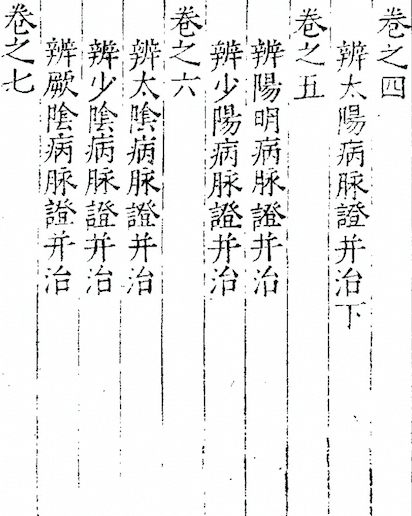 卷之四
辨太陽病脉證并治下
卷之五
辨陽明病脉證并治
辨少陽病脉證并治
卷之六
辨太陰病脉證并治
辨少陰病脉證并治
辨厥陰病脉證并治
卷之七